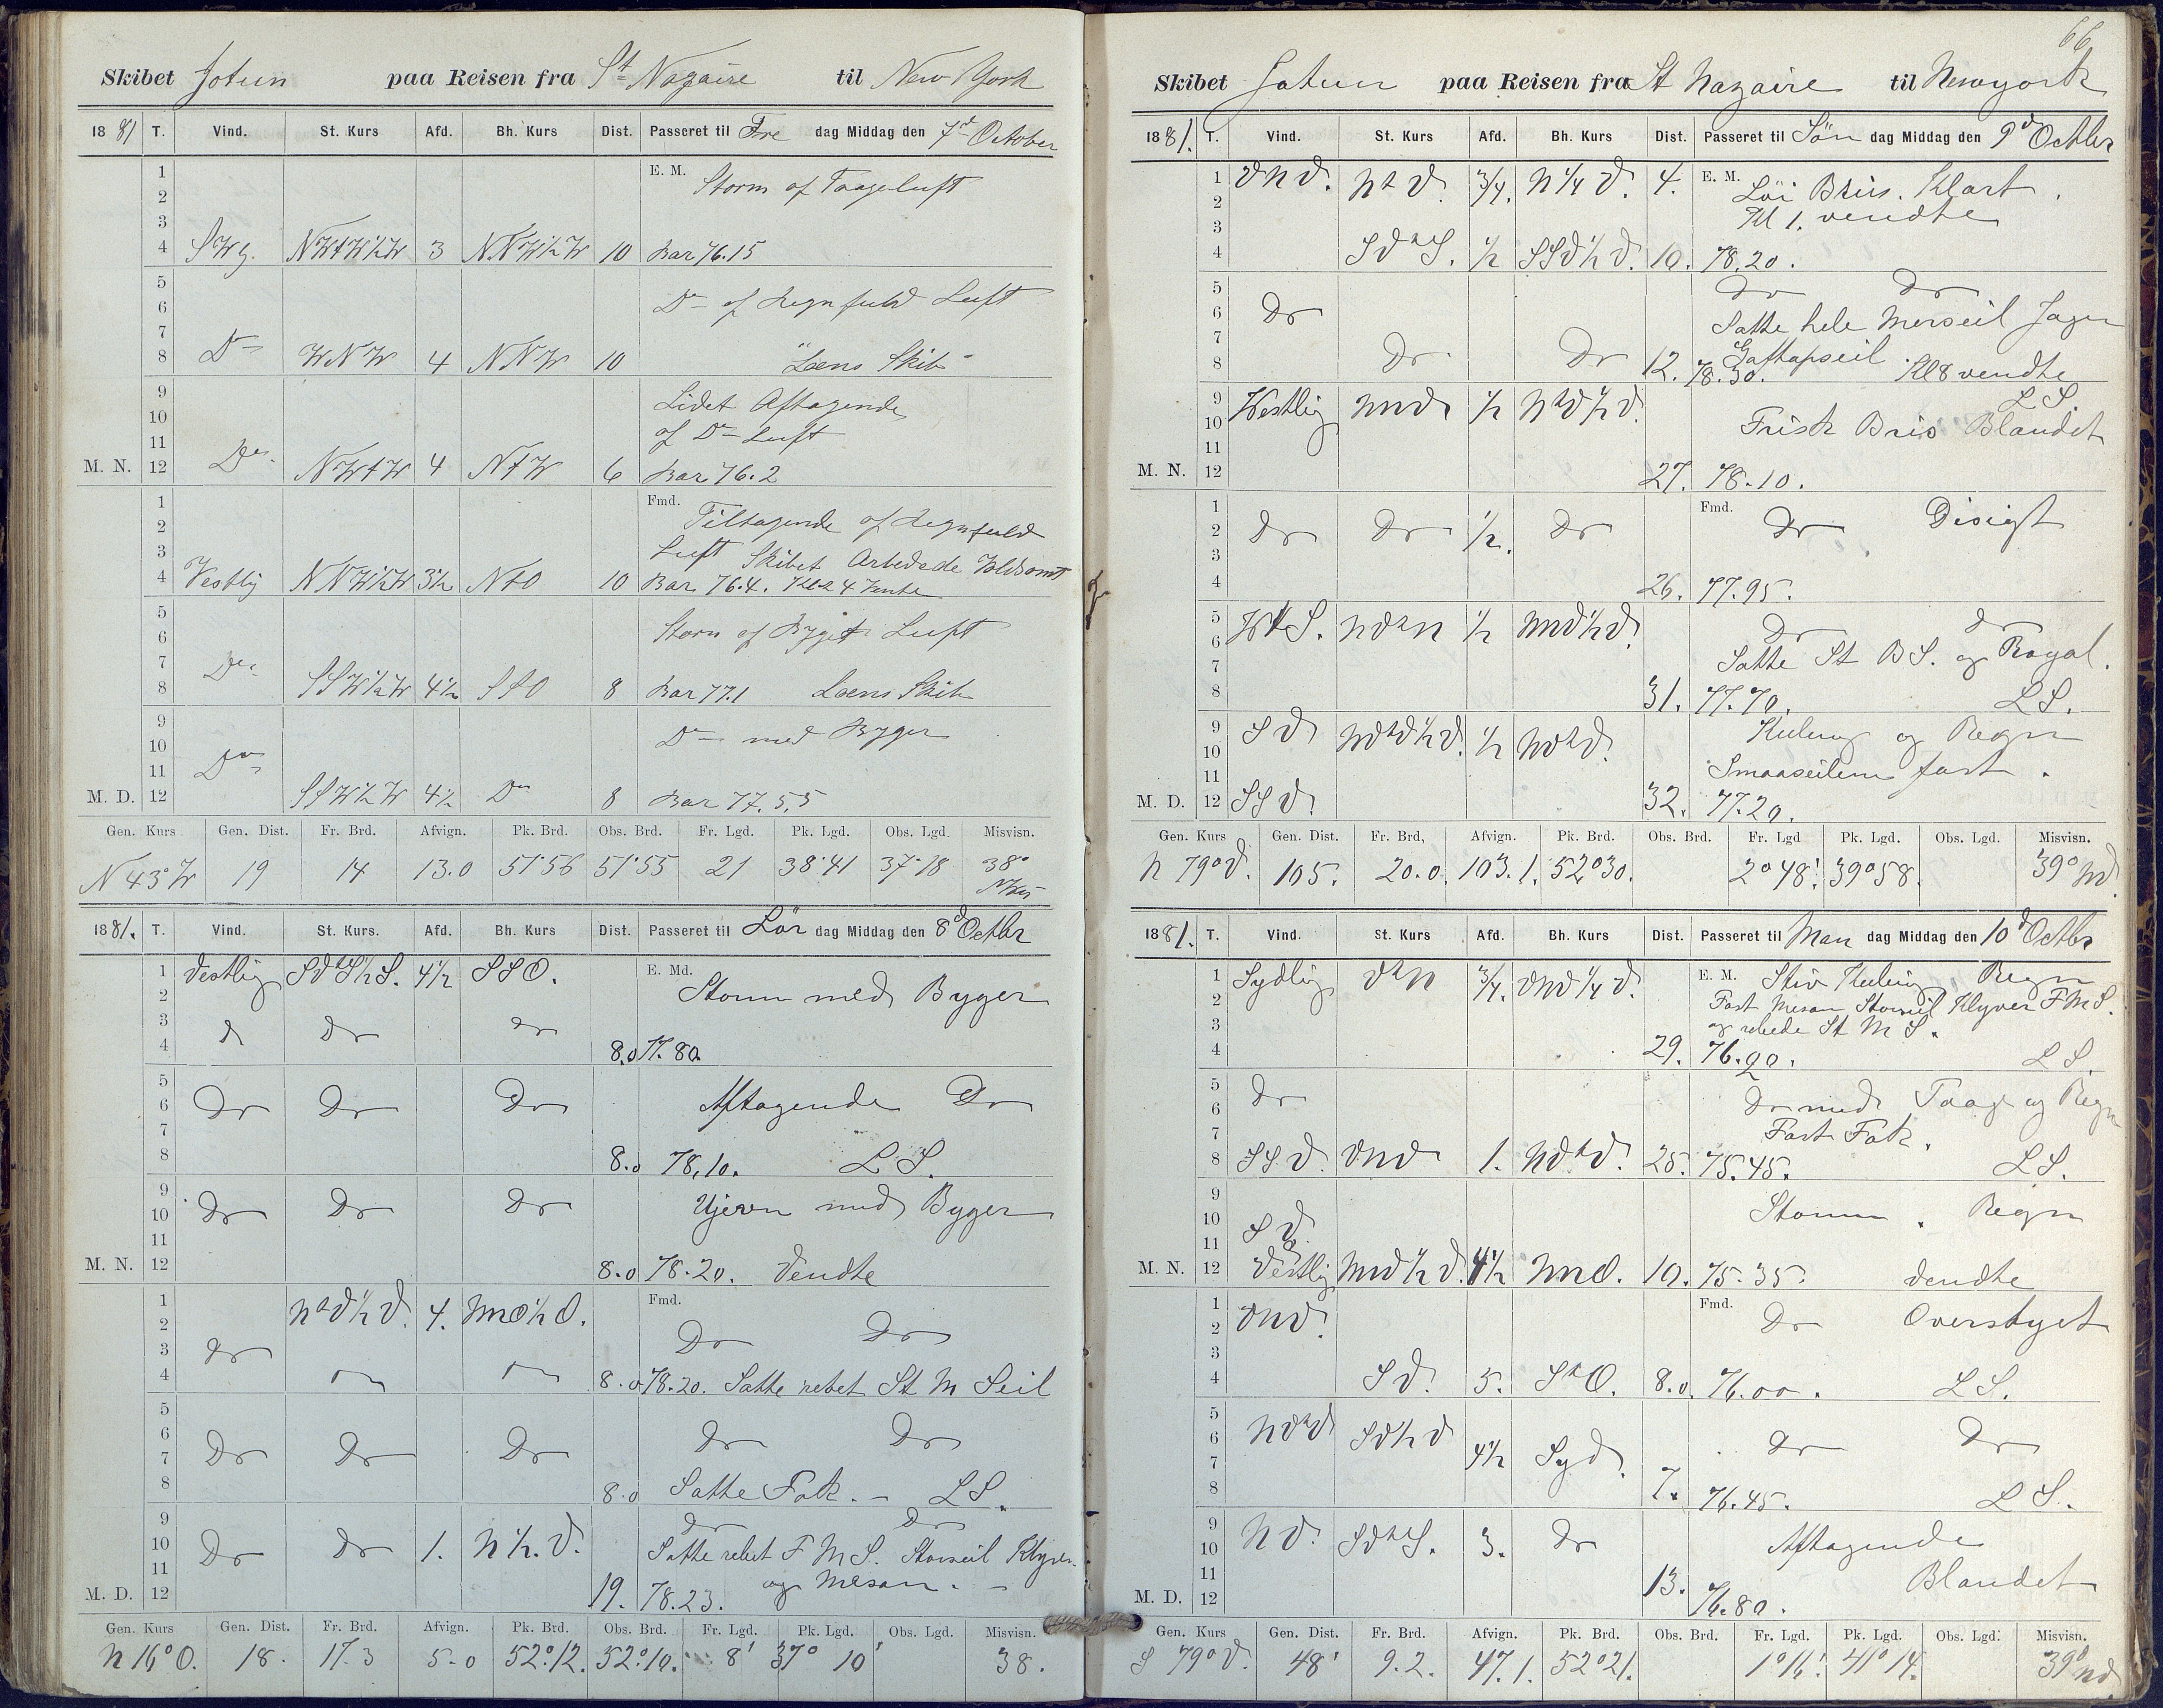 66
Skibet Jotun paa Reisen fra St Nazaire til New York
1881 T. Vind. St. Kurs Afd. Bh. Kurs Dist. Passeret til Fre dag Middag den 7d October
1 E. M. Storm af Taageluft
2
3
4 SWg. NWtW½W 3 NNW½W 10 Bar 76.15
5 Do af Regnfuld Luft
6
7
8 Do WNW 4 NNW 10 "Læns Skib"
9 Lidet Aftagende
10 af Do Luft
11
M. N. 12 Do NWtW 4 NtW 6 Bar 76.2
1 Fmd. Tiltagende af Regnfuld
2
3 Luft Skibet Arbedede Voldsomt
4 Vestlig NNW½W 3½ NtO 10 Bar 76.4. Kl 4 Vente
5 Storm af Byget Luft
6
7
8 Do SSW½W 4½ StO 8 Bar 77.1 Læns Skib
9 Do med Byger
10
11
M. D. 12 Do SSW½W 4½ Do 8 Bar 77.5,5
Gen. Kurs Gen. Dist. Fr. Brd. Afvign. Pk. Brd. Obs. Brd. Fr. Lgd. Pk. Lgd. Obs. Lgd. Misvisn.
N 43° W 19 14 13.0 51°56 51°55 21 38°41 37°18 38°
1881. T. Vind. St. Kurs. Afd. Bh. Kurs Dist. Passeret til Lör dag Middag den 8d Octbr
1 Vestlig SVtS½S. 4½ SSO. E. Md.
2 Storm med Byger
3 d Dr Dr
4 8.0 77.80
5
6 Dr Dr Dr Aftagende Dr
7
8 8.0 78,10. L S.
9
10 Dr Dr Dr Ujevn med Byger
11
M. N. 12 8.0 78.20. Vendte
1 NtV½V. 4. NNO½O. Fmd.
2 Dr Dr
3 Dr
4 8.0 78.20. Satte rebet St M Seil
5
6 Dr Dr
7 Dr Dr Dr
8 8.0 Satte Fok. — L S.
9 Dr Dr
10 Dr Dr 1. N½.V. Satte rebet F M S. Storseil Klyver
11 og Mesan. —
M. D. 12 19. 78.23.
Gen. Kurs Gen. Dist. Fr. Brd. Afvign. Pk. Brd. Obs. Brd. Fr. Lgd. Pk. Lgd. Obs. Lgd. Misvisn.
N 16° O. 18. 17.3 5.0 52°.12. 52°.10. 8' 37° 10' 38.
Skibet Jotun paa Reisen fra St Nazaire til Newyork
1881. T. Vind. St. Kurs Afd. Bh. Kurs Dist. Passeret til Sön dag Middag den 9d Octbr
1 VNV. NtV. ¾. N¼V. 4. E. M. Löi Bris. Klart.
2 Kl 1. vendte
3
4 SVtS. ½ SSV½V. 10. 78.20.
5 Dr Dr
6 Dr Satte hele Merseil Jager
7 Gaftapseil
8 Dr Dr 12. 78.30. Kl 8 vendte
9 Westlig NNV ½ NtV½V. L S
10 Frisk Bris Blandet
11
M. N. 12 27. 78.10.
1 Fmd.
2 Dr Dr ½. Dr Dr Disigt
3
4 26. 77.95.
5 WtS. NVtN ½ NNV½V. Dr Dr
6
7 Satte St B S. og Royal.
8 31. 77.70. L S.
9 SV NVtV½V. ½ NVtV. Kuling og Regn
10
11 Smaaseilene fast.
M. D. 12 SSV. 32. 77.20.
Gen. Kurs Gen. Dist. Fr. Brd, Afvign. Pk. Brd. Obs. Brd. Fr. Lgd Pk. Lgd. Obs. Lgd. Misvisn.
N 79° V. 105. 20.0. 103.1. 52°30. 2°48'. 39°58. 39° NV.
1881. T. Vind. St. Kurs Afd. Bh. Kurs Dist. Passeret til Man dag Middag den 10d Octbr
1 Sydlig VtN ¾. VNV¼V. E. M. Stiv Kuling Regn
2 Fast Mesan Storseil Klyver F M S.
3 og rebede St M S.
4 29. 76.90. L S.
5 Dr Dr med Taage og Regn
6
7 Fast Fok.
8 SSV. VNV 1. NVtV. 25. 75.45. L S.
9 Storm. Regn
10 SV.
11
M. N. 12 Vestlig NNV½V. 4½ NNO. 10. 75.35. Vendte
1 VNV. Fmd. Dr Overskyet
2
3
4 SV. 5. StO. 8.0. 76.00. L S.
5
6 NVtV SV½V 4½ Syd. Dr Dr
7
8 7. 76.45. L S.
9 NV. SVtS. 3. Dr Aftagende
10
11 Blandet
M. D. 12 13. 76.80.
Gen. Kurs Gen. Dist. Fr. Brd. Afvign. Pk. Brd. Obs. Brd. Fr. Lgd. Pk. Lgd. Obs. Lgd. Misvisn.
S 79° V. 48' 9.2. 47.1. 52°21. 1°16'. 41°14. 39° NV